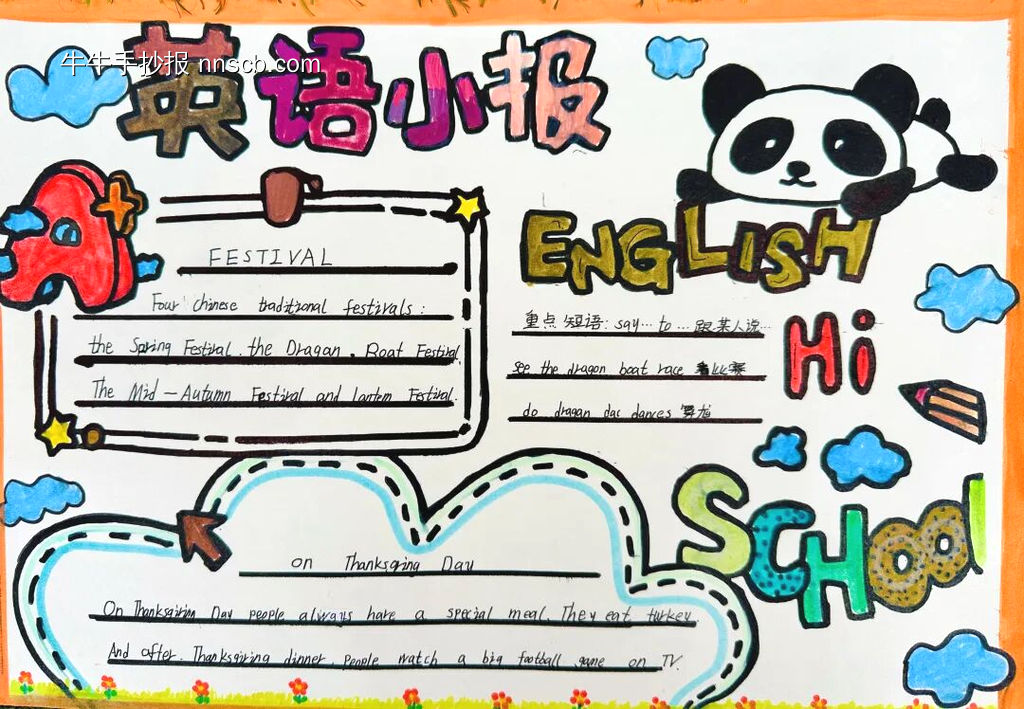 英语小报
牛牛手抄报 nnscb.com
ENGLISH
FESTIVAL
Four chinese traditional festivals:
the Spring Festival. the Dragan. Boat Festival,
The Mid-Autumn Festival and lantern Festival.
重点短语: say… to … 跟某人说…
see the dragon boat race 看比赛
do dragan dac dances 舞龙
Hi
SCHOOl
on Thanksgiving Day
On Thanksgiving Day people always have a special meal. They eat turkey
And after. Thanksgiving dinner. People watch a big football game on TV.